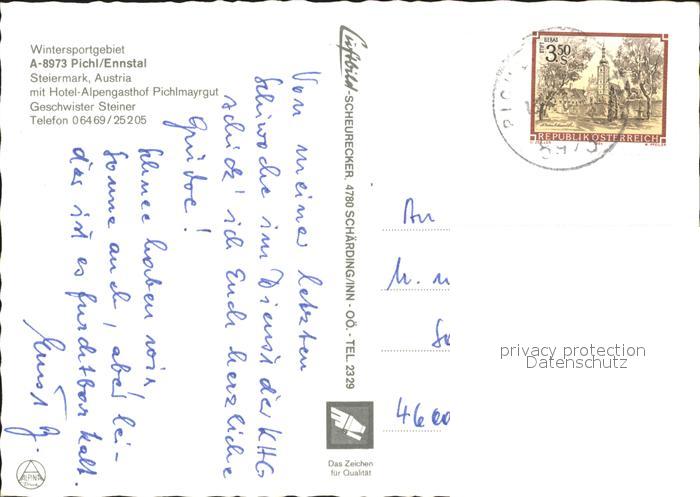 Wintersportgebiet
A-8973 Pichl/Ennstal
Steiermark, Austria
mit Hotel-Alpengasthof Pichlmayrgut
Geschwister Steiner
Telefon 06469/25205
Von meiner letzten
Schiwoche im Dienst der KHG
schick' ich Euch herzliche
Grüße!
Schnee haben wir,
Sonne auch, aber lei-
der ist es furchtbar kalt.
Luftbild-SCHEURECKER, 4780 SCHÄRDING/INN - OÖ. - TEL. 2329
STIFT GERAS
3.50 S
REPUBLIK ÖSTERREICH
8973
An
privacy protection
Datenschutz
Das Zeichen
für Qualität
ALPINA